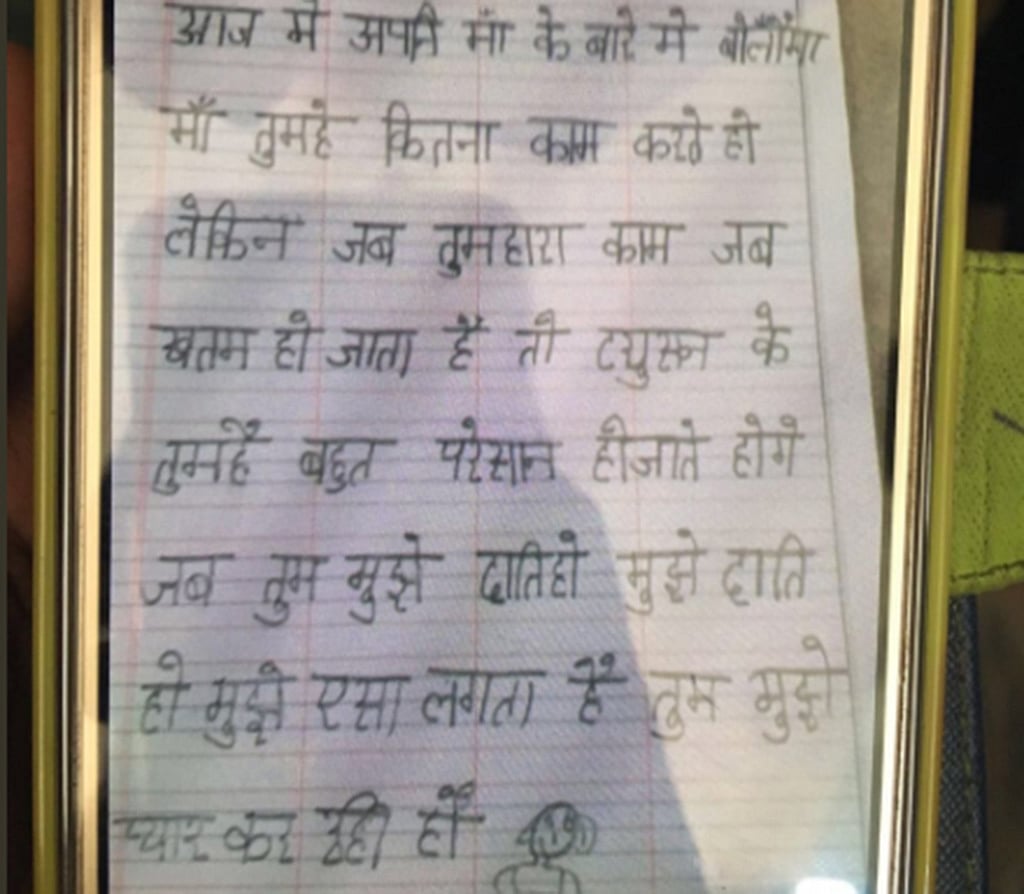 आज मे अपनी माँ के बारे मे बोलौंगा
माँ तुमहे कितना काम करते हो
लेकिन जब तुमहारा काम जब
खतम हो जाता हैं तो टयुसन के
तुमहैं बहुत परेसान हीजाते होगे
जब तुम मुझे दातिहो मुझे दाति
हो मुझे एसा लगता हैं तुम मुझे
प्यार कर रही हौं